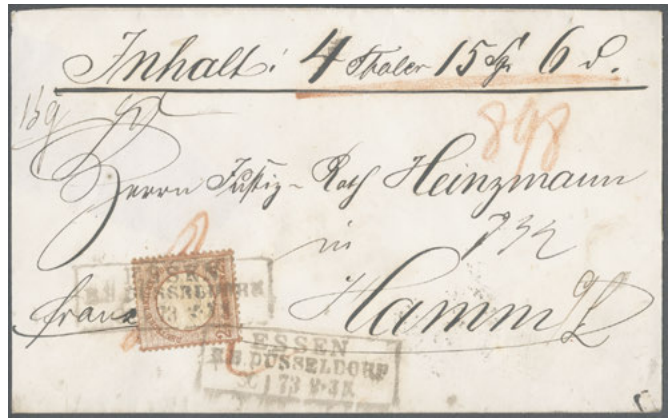 Inhalt: 4 Thaler 15 Sgr 6 d.
898
Herrn Justiz-Rath Heinzmann
in
Hamm
franco
ESSEN
DÜSSELDORF
73
ESSEN
DÜSSELDORF
73